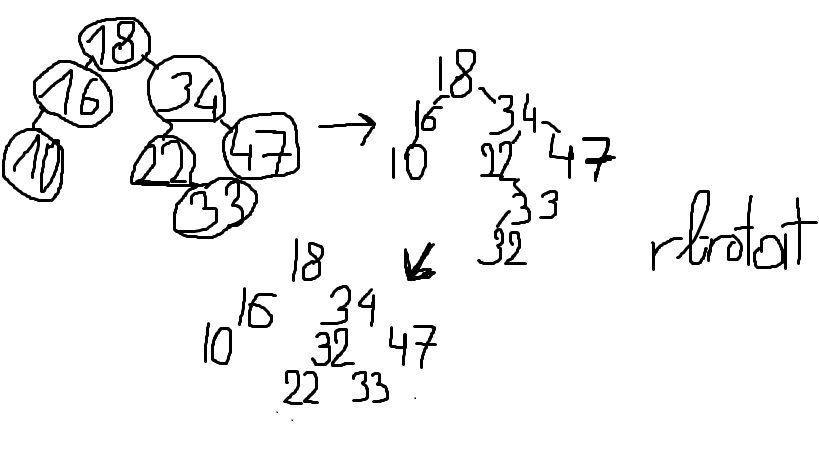 18
16 34
10 22 47
33
18
16 34
10 22 47
33
32
18
16 34
10 32 47
22 33